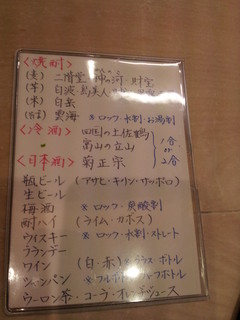 <焼酎>
(麦) 二階堂 神の河
(芋) 白波 島美人
(米) 白岳
雲海 ※ロック・水割・お湯割
<冷酒> 四国の土佐鶴
富山の立山
1合
2合
<日本酒> 菊正宗
瓶ビール (アサヒ・キリン・サッポロ)
生ビール
梅酒 ※ロック・炭酸割
酎ハイ (ライム・カボス)
ウイスキー ※ロック・水割・ストレート
ブランデー
ワイン (白・赤) グラス ボトル
シャンパン ※フルボトル ハーフボトル
ウーロン茶・コーラ・オレンジジュース